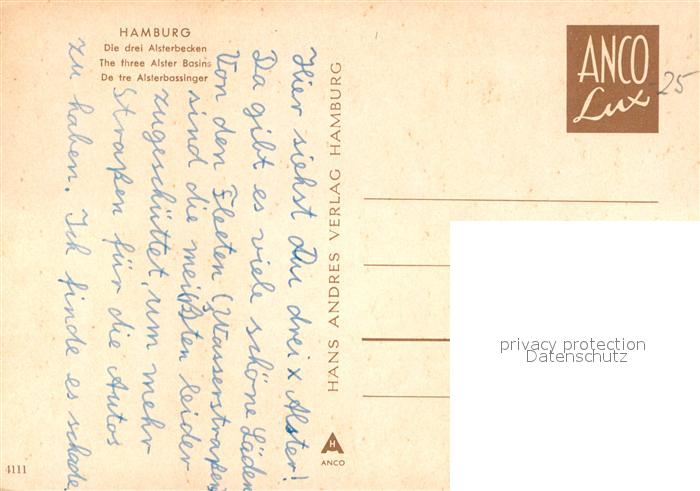 HAMBURG
Die drei Alsterbecken
The three Alster Basins
De tre Alsterbassinger
Hier siehst Du drei x Alster!
Da gibt es viele schöne Läden
Von den Fleeten (Wasserstraßen
sind die meißten leider
zugeschüttet, um mehr
Straßen für die Autos
zu haben. Ich finde es schade
HANS ANDRES VERLAG HAMBURG
H
ANCO
4111
ANCO
Lux
-25
privacy protection
Datenschutz